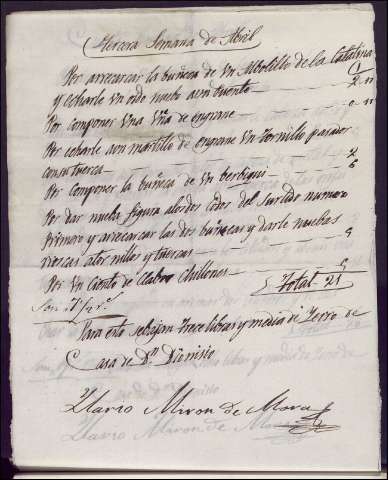 tercera Semana de Abril
Por arrecarcar la buñeca de Un Albolillo de la Catalina
y echarle un oido nuebo aun tucuto 2
Por componer Una Uña de engrane
Por echarle aun martillo de engrane Un tornillo pasador
con su tuerca 2
Por Componer la buñeca de Un berbiqui 6
Por dar nueba figura alos dos codos del Surtido numero
primero y arrecarcar las dos buñecas y darle nuebas
roscas a tornillos y tuercas
Por Un Ciento de Clabos Chillones
Total 21
Para esto sebajan trece libras y media de Yerro de
Casa de Dn Dionisio
Ylario Miron de Mora